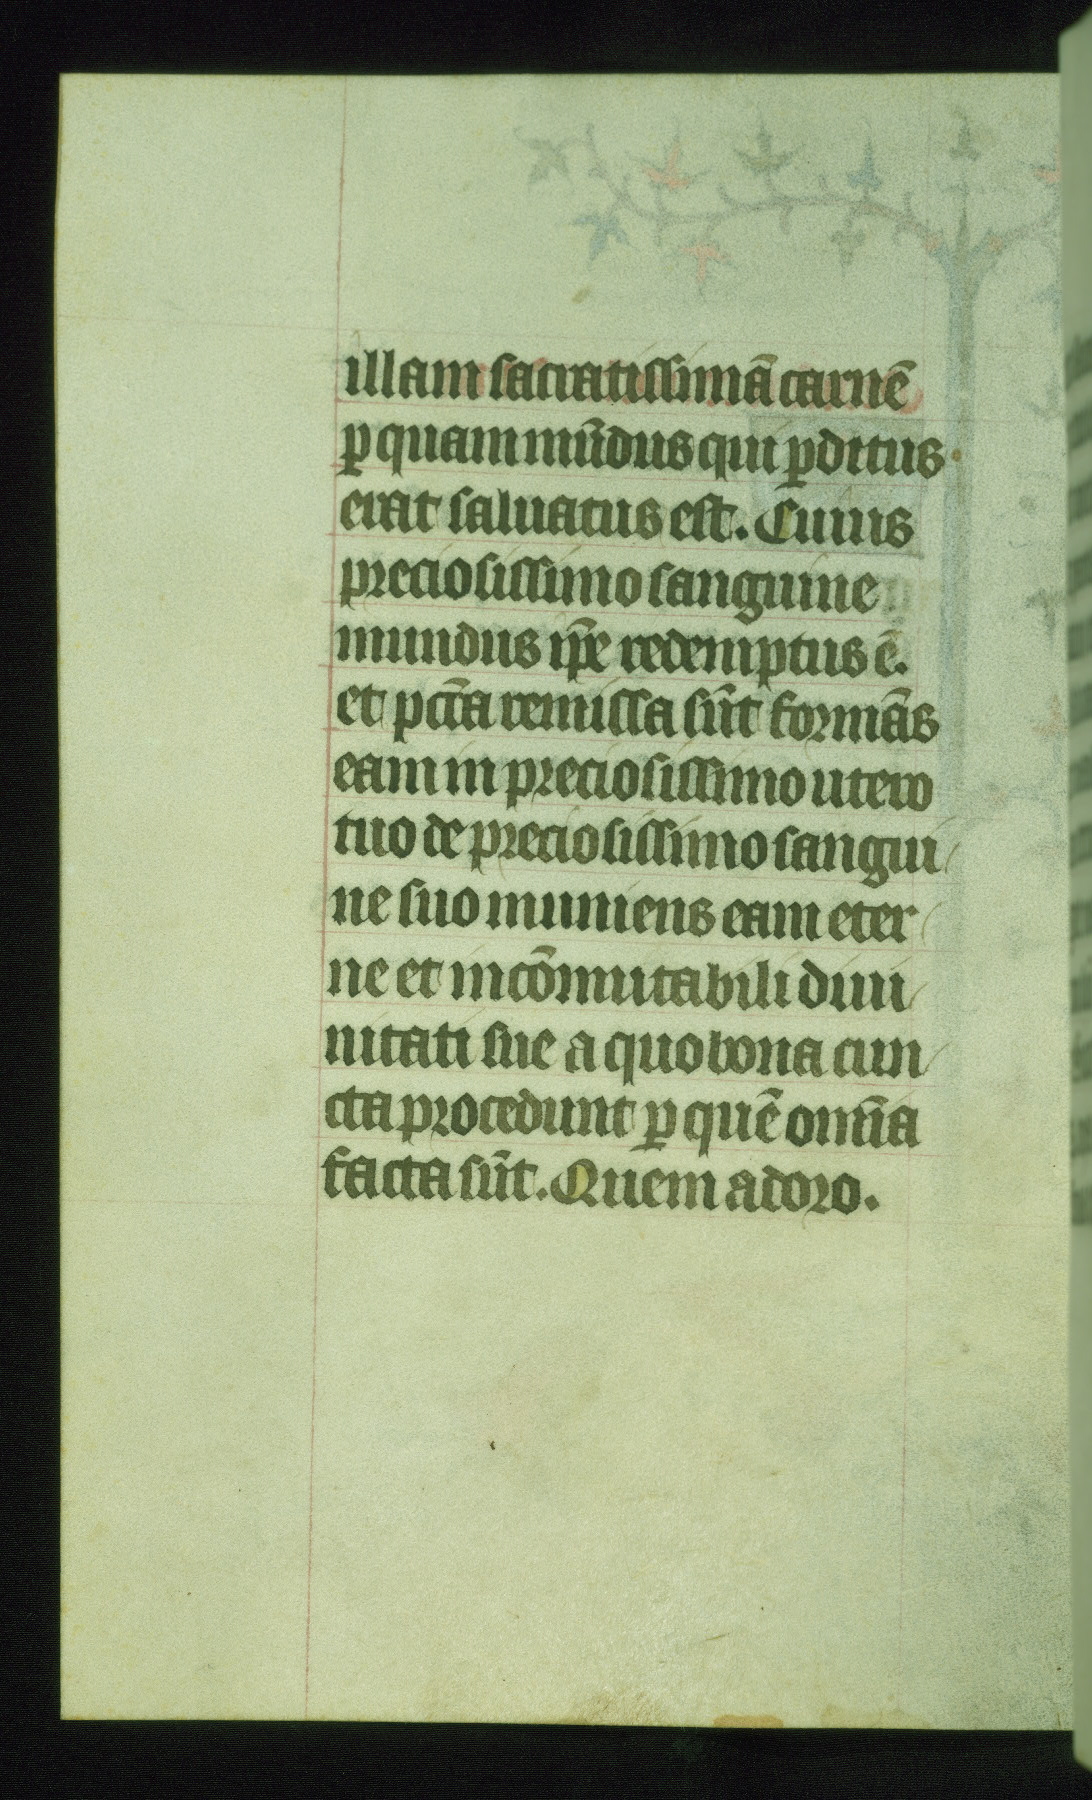 illam sacratissimā carnē
ꝑ quam mūdus qui ꝑditus
erat saluatus est. Cuius
preciosissimo sanguine
mundus ip̄e redemptus ē.
et pctā remissa sūt formās
eam in preciosissimo utero
tuo de preciosissimo sangui
ne suo muniens eam eter
ne et incōmutabili diui
nitati sue a quo bona cun
cta procedunt ꝑ quē om̄ia
facta sūt. Quem adoro.